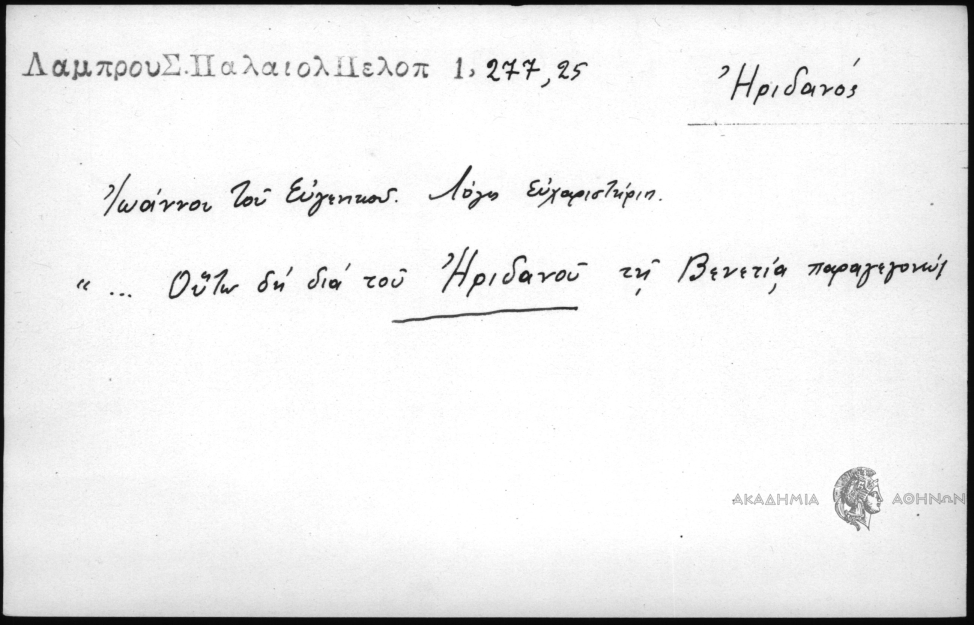 ΛαμπρουΣ.ΠαλαιολΠελοπ 1, 277, 25
Ἠριδανός
Ἰωάννου τοῦ Εὐγενικοῦ. Λόγος εὐχαριστήριος.
“ ... Οὕτω δή διά τοῦ Ἠριδανοῦ τῇ Βενετίᾳ παραγεγονώς
ΑΚΑΔΗΜΙΑ ΑΘΗΝΩΝ